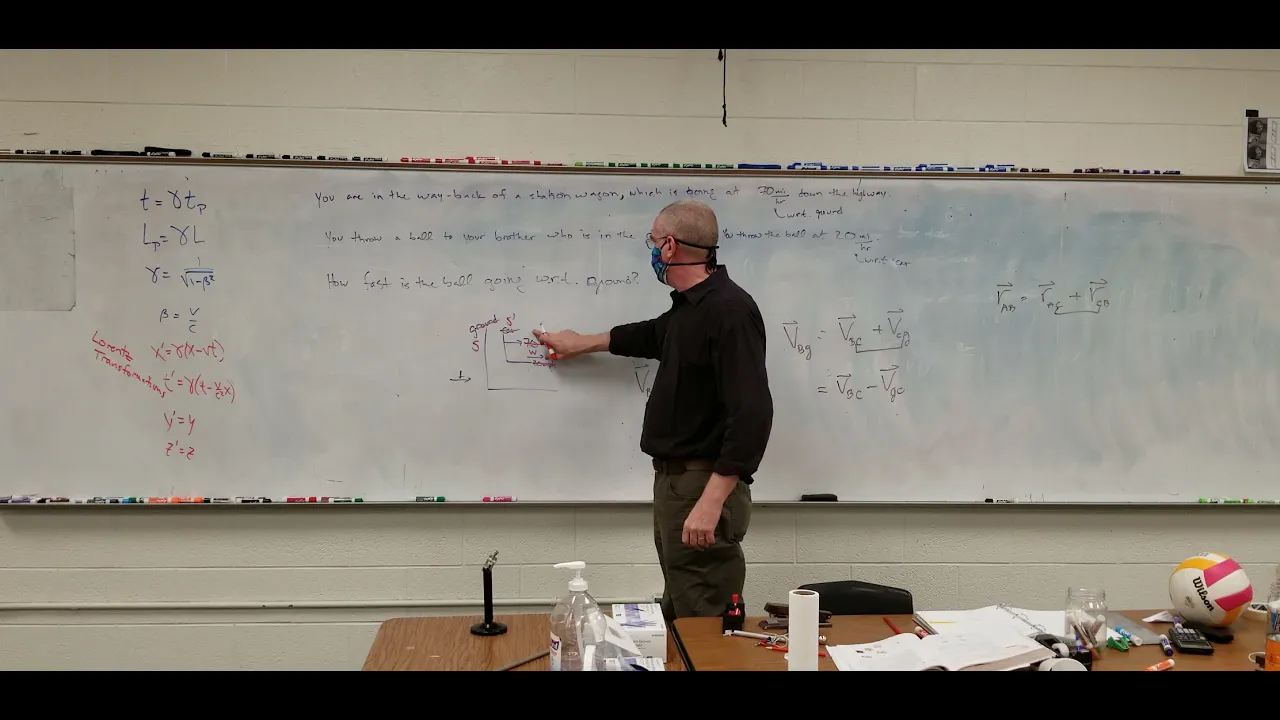 t = γ t_p
L_p = γ L
γ = 1/√(1-β²)
β = v/c
Lorentz
Transformations
x' = γ(x-vt)
t' = γ(t - v/c² x)
y' = y
z' = z
You are in the way-back of a station wagon, which is going at 30 mi/hr down the highway.
w.r.t. ground
You throw a ball to your brother who is in the You throw the ball at 20 mi/hr.
w.r.t. car
How fast is the ball going w.r.t. ground?
ground
S
S'
car
w
V_Bg = V_Bc + V_cg
= V_Bc - V_gc
r_AB = r_Ac + r_cB
Wilson